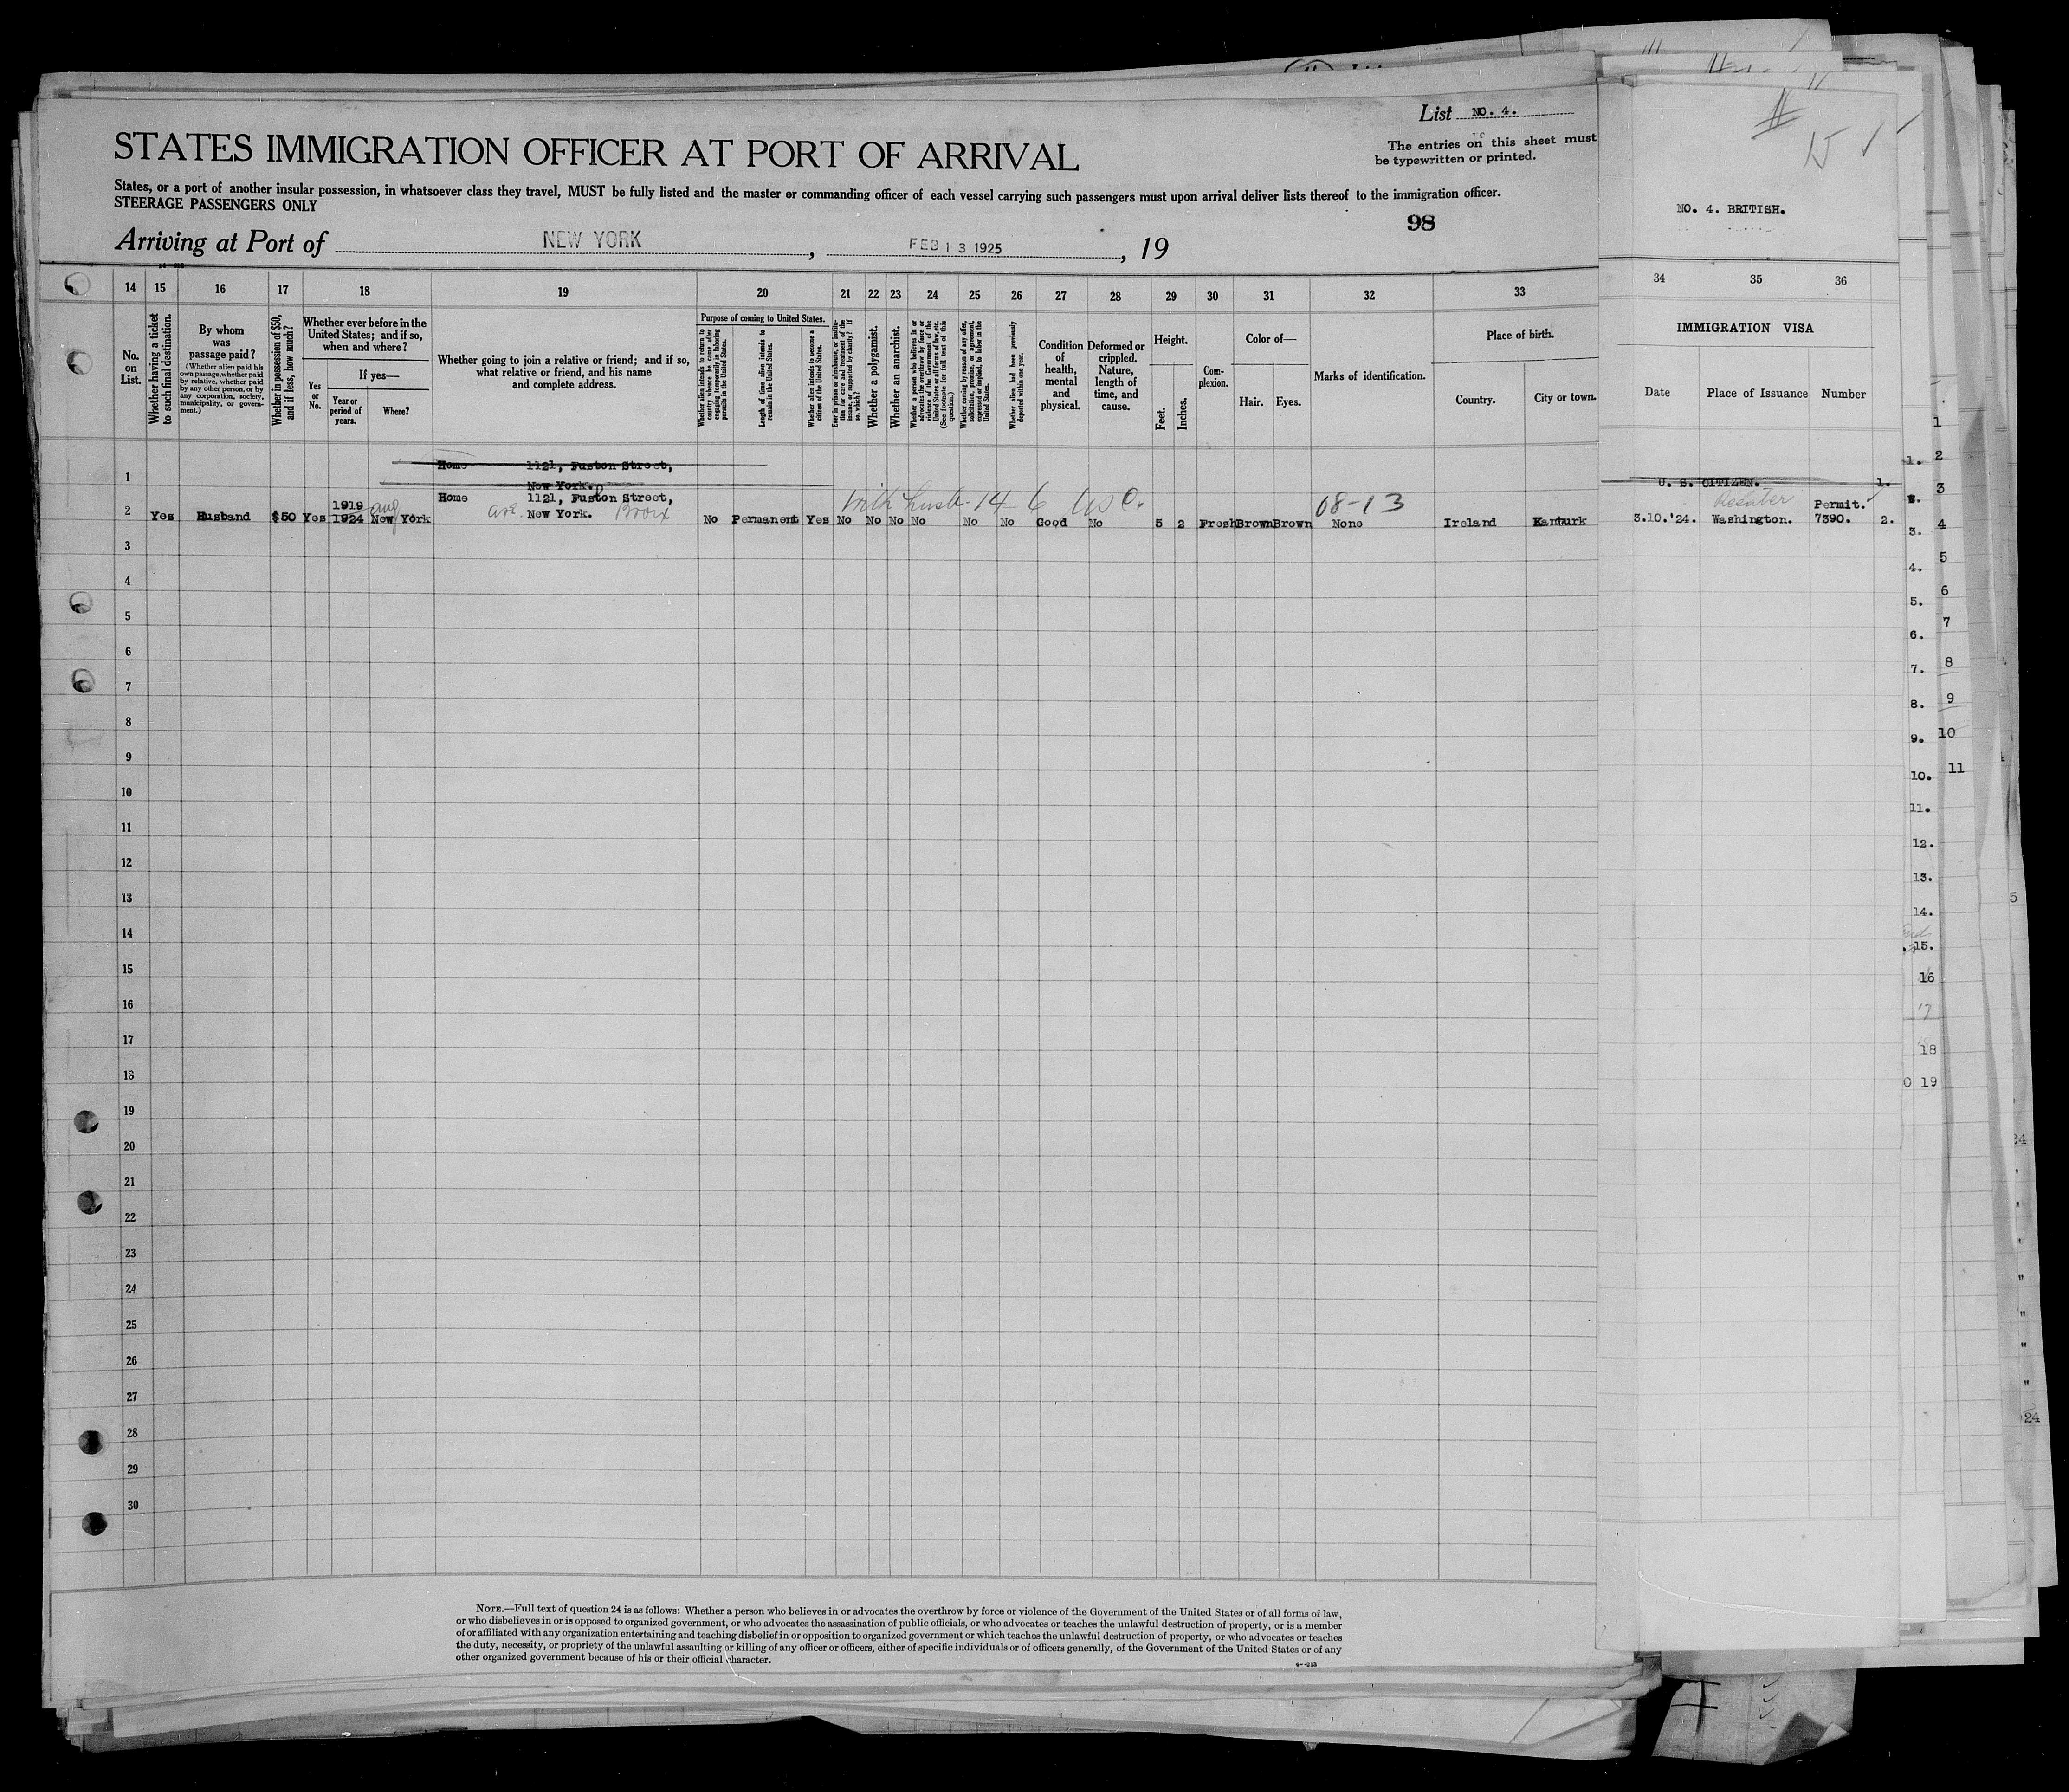 List NO. 4.
The entries on this sheet must
be typewritten or printed.
STATES IMMIGRATION OFFICER AT PORT OF ARRIVAL
States, or a port of another insular possession, in whatsoever class they travel, MUST be fully listed and the master or commanding officer of each vessel carrying such passengers must upon arrival deliver lists thereof to the immigration officer.
STEERAGE PASSENGERS ONLY
98
Arriving at Port of NEW YORK, FEB 13 1925, 19
NO. 4. BRITISH.
14 15 16 17 18 19 20 21 22 23 24 25 26 27 28 29 30 31 32 33
34 35 36
No. on List.
Whether having a ticket to such final destination.
By whom was passage paid?
(Whether alien paid his own passage, whether paid by relative, whether paid by any other person, or by any corporation, society, municipality, or government.)
Whether in possession of $50, and if less, how much?
Whether ever before in the United States; and if so, when and where?
Yes or No.
If yes—
Year or period of years.
Where?
Whether going to join a relative or friend; and if so, what relative or friend, and his name and complete address.
Purpose of coming to United States.
Whether alien intends to return to country whence he came after engaging temporarily in laboring pursuits in the United States.
Length of time alien intends to remain in the United States.
Whether alien intends to become a citizen of the United States.
Ever in prison or almshouse, or institution for care and treatment of the insane, or supported by charity? If so, which?
Whether a polygamist.
Whether an anarchist.
Whether a person who believes in or advocates the overthrow by force or violence of the Government of the United States or all forms of law, etc. (See footnote for full text of this question.)
Whether coming by reason of any offer, solicitation, promise, or agreement, expressed or implied, to labor in the United States.
Whether alien had been previously deported within one year.
Condition of health, mental and physical.
Deformed or crippled. Nature, length of time, and cause.
Height.
Feet.
Inches.
Complexion.
Color of—
Hair.
Eyes.
Marks of identification.
Place of birth.
Country.
City or town.
IMMIGRATION VISA
Date
Place of Issuance
Number
1 Home 1121, Fuston Street,
New York.
U. S. CITIZEN. 1.
with husb - 14 - 6 USC. 08-13
2 Yes Husband $50 Yes 1919 1924 aug New York Home 1121, Fuston Street, ave. New York. Bronx No Permanent Yes No No No No No No Good No 5 2 Fresh Brown Brown None Ireland Kanturk 3.10.'24. Washington. Permit. 7390. 2.
3
4
5
6
7
8
9
10
11
12
13
14
15
16
17
18
19
20
21
22
23
24
25
26
27
28
29
30
NOTE.—Full text of question 24 is as follows: Whether a person who believes in or advocates the overthrow by force or violence of the Government of the United States or of all forms of law,
or who disbelieves in or is opposed to organized government, or who advocates the assassination of public officials, or who advocates or teaches the unlawful destruction of property, or is a member
of or affiliated with any organization entertaining and teaching disbelief in or opposition to organized government or which teaches the unlawful destruction of property, or who advocates or teaches
the duty, necessity, or propriety of the unlawful assaulting or killing of any officer or officers, either of specific individuals or of officers generally, of the Government of the United States or of any
other organized government because of his or their official character.